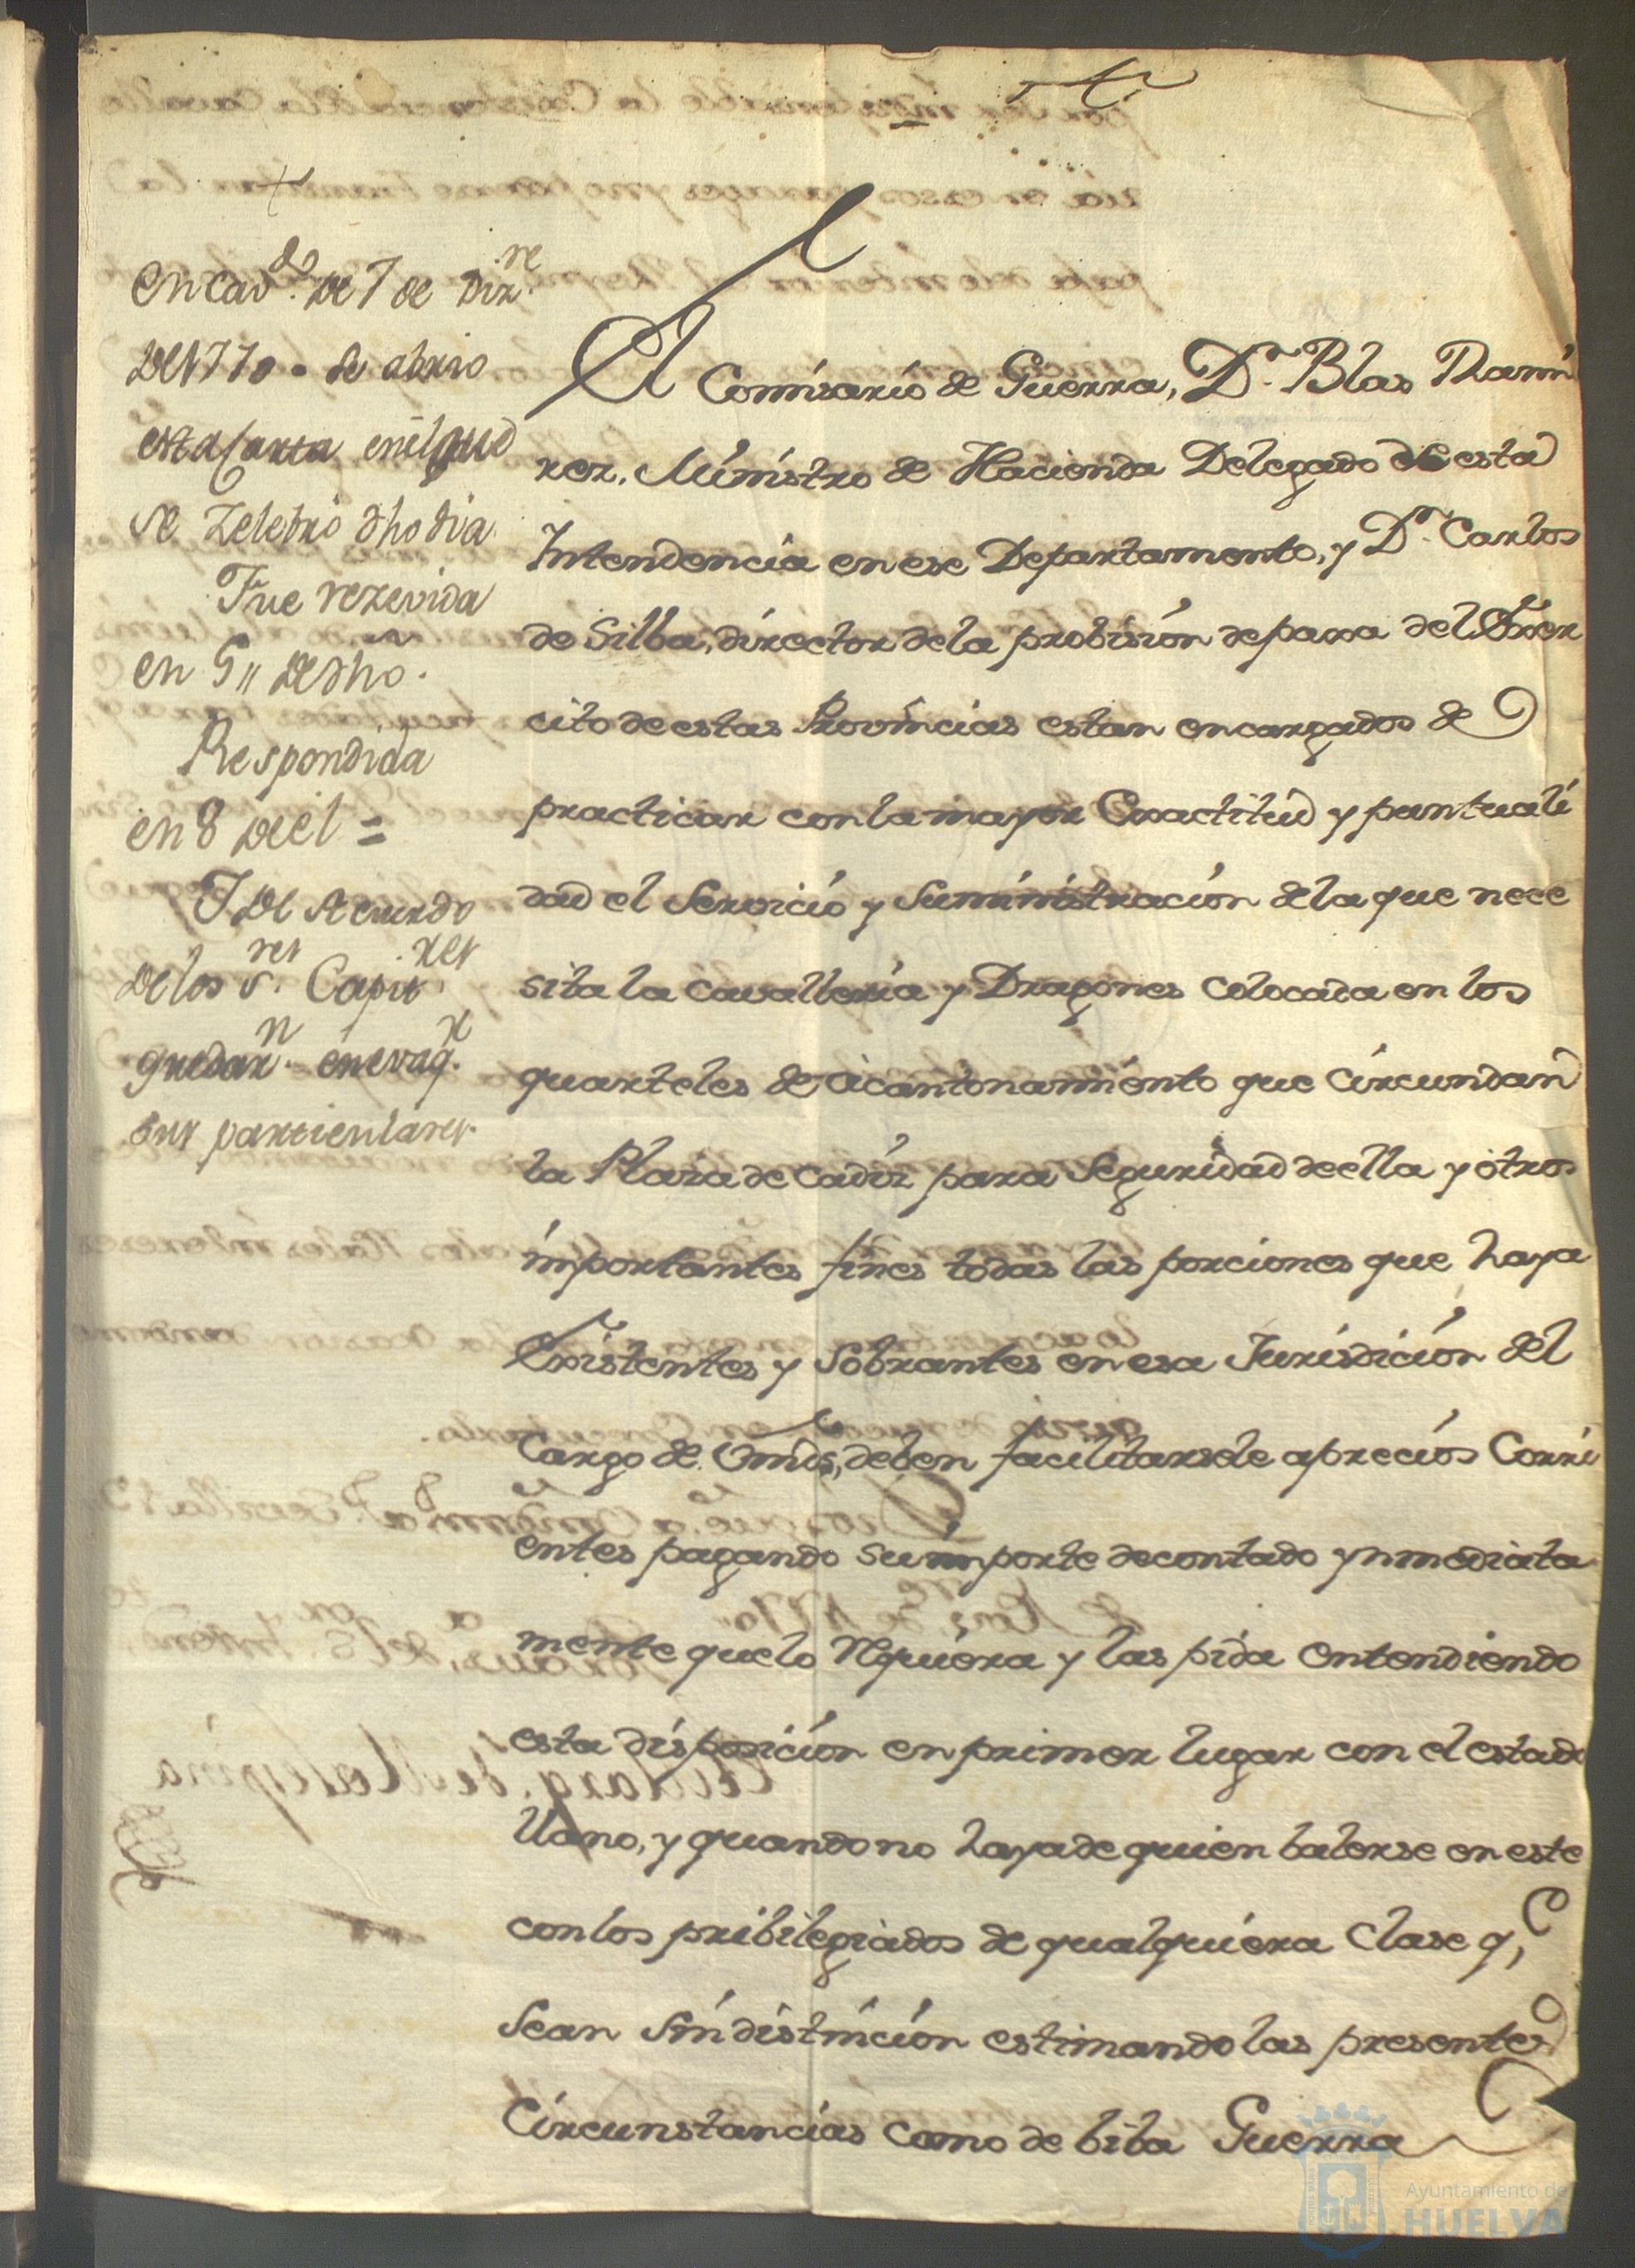 en cav.do de 7 de Diz.re
de 1770. Se abrio
esta Carta en el que
se Zelebro dho dia.
Fue rezevida
en 5,, de dho.
Respondida
en 8 del =
I de Acuerdo
de los S.res Capit.res
quedar.n
sus particulares.
El Comisario de Guerra, D.n Blas Rami
rez, Ministro de Hacienda Delegado de esta
Intendencia en ese Departamento, y D.n Carlos
de Silba, director de la probision de paxa del Exer
cito de estas Provincias estan encargados de
practicar con la mayor Exactitud y puntuali
dad el Servicio y Suministracion de la que nece
sita la Cavalleria y Dragones Colocada en los
quarteles de Acantonamiento que Circundan
la Plaza de Cadiz para Seguridad de ella y otros
importantes fines todas las porciones que haya
Existentes y Sobrantes en esa Jurisdicion del
Cargo de Vmds, deben facilitarsele a precios Corri
entes pagando su importe de contado ynmediata
mente que lo Rquiera y las pida entendiendo
esta disposicion en primer lugar con el estado
llano, y quando no haya de quien balerse en este
con los pribilegiados de qualquiera Clase q.e
Sean Sin distincion estimando las presentes
Circunstancias Como de biba Guerra
Ayuntamiento de
HUELVA